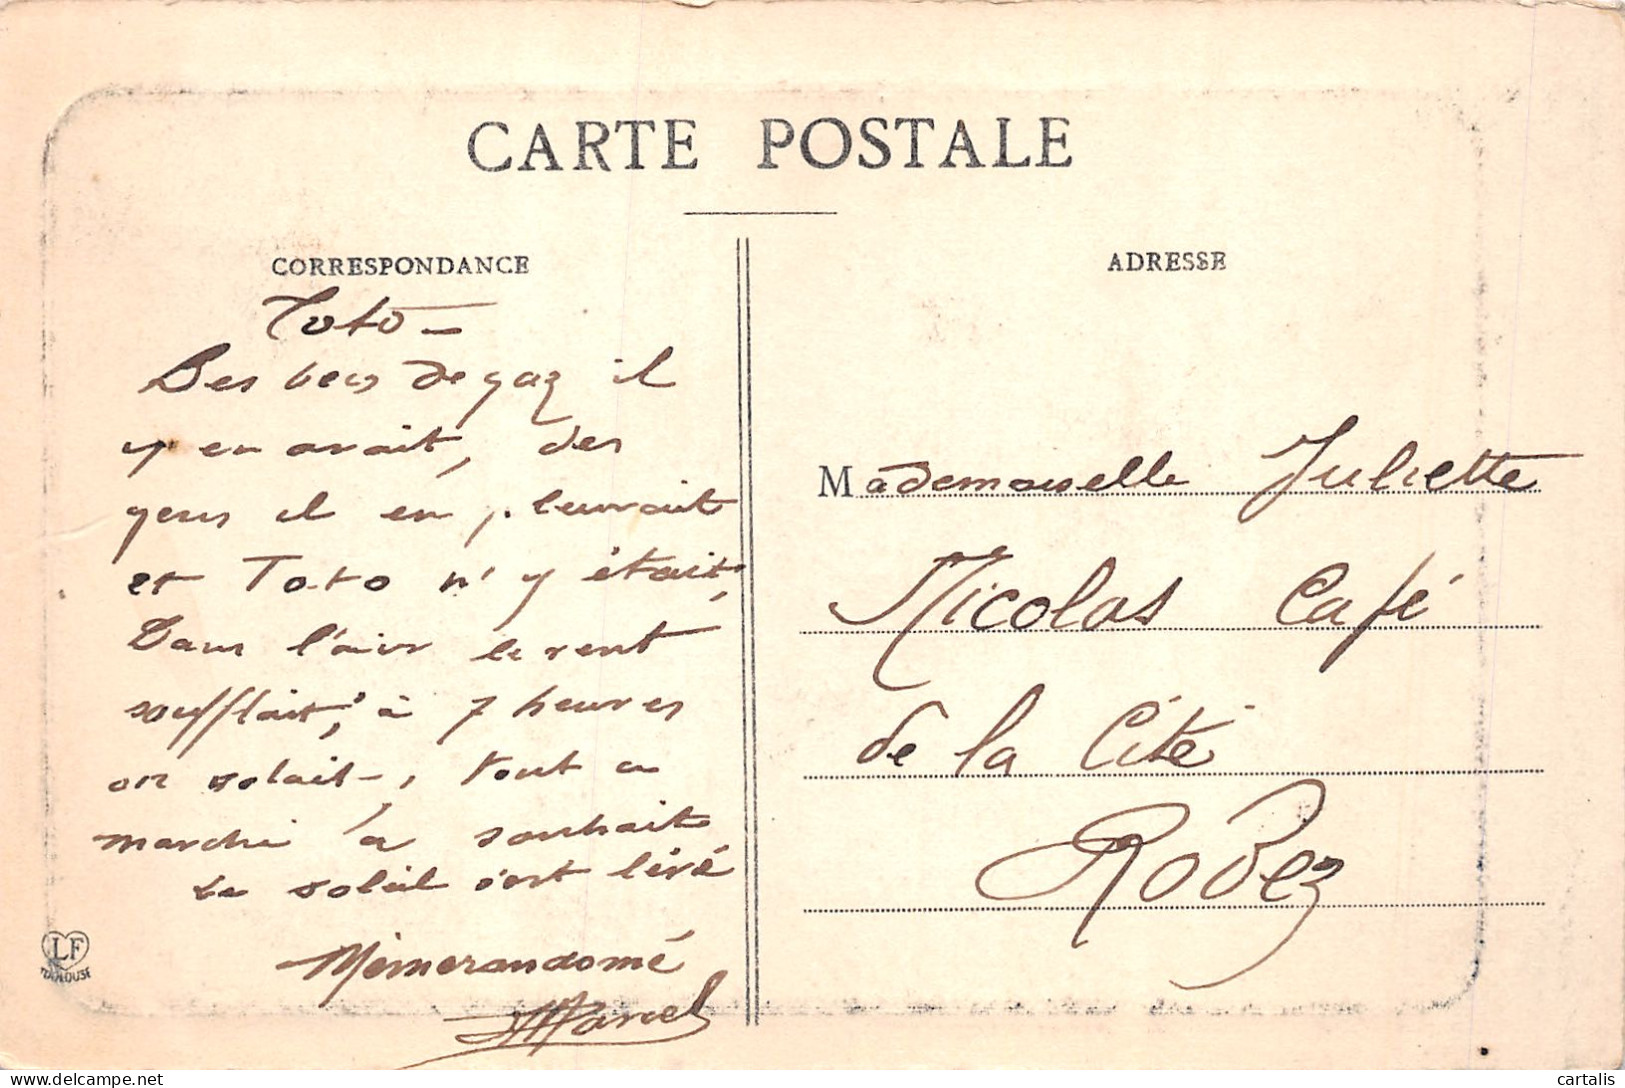 CARTE POSTALE
CORRESPONDANCE
Toto -
Des becs de gaz il
y en avait, des
gens il en pleuvait
et Toto n'y était,
Dans l'air le vent
soufflait, à 7 heures
on volait, tout a
marché à souhait
Le soleil s'est levé
Mémorandomé
Marcel
ADRESSE
Mademoiselle Juliette
Nicolas Café
de la Cité
Rodez
LF
TOULOUSE
delcampe.net
cartalis